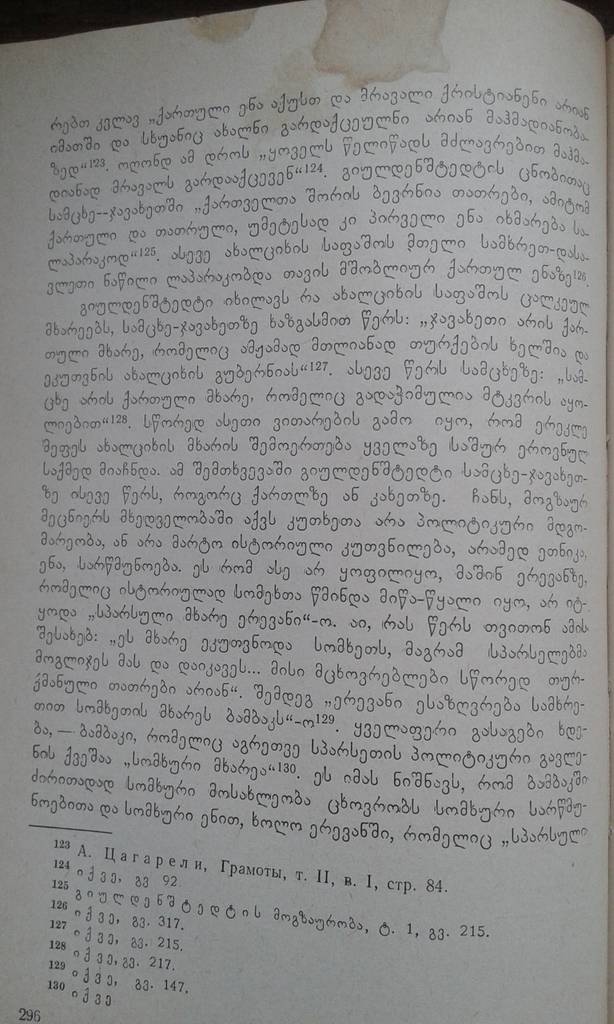 რებთ კვლავ „ქართული ენა აქუსთ და მრავალი ქრისტიანენი არიან
იმათში და სხუანიც ახალნი გარდაქცეულნი არიან მაჰმადიანობა-
ზედ“¹²³. ოღონდ ამ დროს „ყოველს წელიწადს მძლავრებით მაჰმა-
დიანად მრავალს გარდააქცევენ“¹²⁴. გიულდენშტედტის ცნობითაც
სამცხე--ჯავახეთში „ქართველთა შორის ბევრნია თათრები, ამიტომ
ქართული და თათრული, უმეტესად კი პირველი ენა იხმარება სა-
ლაპარაკოდ“¹²⁵. ასევე ახალციხის საფაშოს მთელი სამხრეთ-დასა-
ვლეთი ნაწილი ლაპარაკობდა თავის მშობლიურ ქართულ ენაზე¹²⁶.
გიულდენშტედტი იხილავს რა ახალციხის საფაშოს ცალკეულ
მხარეებს, სამცხე-ჯავახეთზე ხაზგასმით წერს: „ჯავახეთი არის ქარ-
თული მხარე, რომელიც ამჟამად მთლიანად თურქების ხელშია და
ეკუთვნის ახალციხის გუბერნიას“¹²⁷. ასევე წერს სამცხეზე: „სამ-
ცხე არის ქართული მხარე, რომელიც გადაჭიმულია მტკვრის აყო-
ლიებით“¹²⁸. სწორედ ასეთი ვითარების გამო იყო, რომ ერეკლე
მეფეს ახალციხის მხარის შემოერთება ყველაზე საშურ ეროვნულ
საქმედ მიაჩნდა. ამ შემთხვევაში გიულდენშტედტი სამცხე-ჯავახეთ-
ზე ისევე წერს, როგორც ქართლზე ან კახეთზე. ჩანს, მოგზაურ
მეცნიერს მხედველობაში აქვს კუთხეთა არა პოლიტიკური მდგო-
მარეობა, ან არა მარტო ისტორიული კუთვნილება, არამედ ეთნიკა,
ენა, სარწმუნოება. ეს რომ ასე არ ყოფილიყო, მაშინ ერევანზე,
რომელიც ისტორიულად სომეხთა წმინდა მიწა-წყალი იყო, არ იტ-
ყოდა „სპარსული მხარე ერევანი“-ო. აი, რას წერს თვითონ ამის
შესახებ: „ეს მხარე ეკუთვნოდა სომხეთს, მაგრამ სპარსელებმა
მოგლიჯეს მას და დაიკავეს... მისი მცხოვრებლები სწორედ თურ-
ქმანული თათრები არიან“. შემდეგ „ერევანი ესაზღვრება სამხრე-
თით სომხეთის მხარეს ბამბაკს“-ო¹²⁹. ყველაფერი გასაგები ხდე-
ბა, — ბამბაკი, რომელიც აგრეთვე სპარსეთის პოლიტიკური გავლე-
ნის ქვეშაა „სომხური მხარეა“¹³⁰. ეს იმას ნიშნავს, რომ ბამბაკში
ძირითადად სომხური მოსახლეობა ცხოვრობს სომხური სარწმუ-
ნოებითა და სომხური ენით, ხოლო ერევანში, რომელიც „სპარსული
¹²³ А. Цагарели, Грамоты, т. II, в. I, стр. 84.
¹²⁴ იქვე, გვ 92
¹²⁵ გიულდენშტედტის მოგზაურობა, ტ. 1, გვ. 215.
¹²⁶ იქვე, გვ. 317.
¹²⁷ იქვე, გვ. 215.
¹²⁸ იქვე, გვ. 217.
¹²⁹ იქვე, გვ. 147.
¹³⁰ იქვე
296